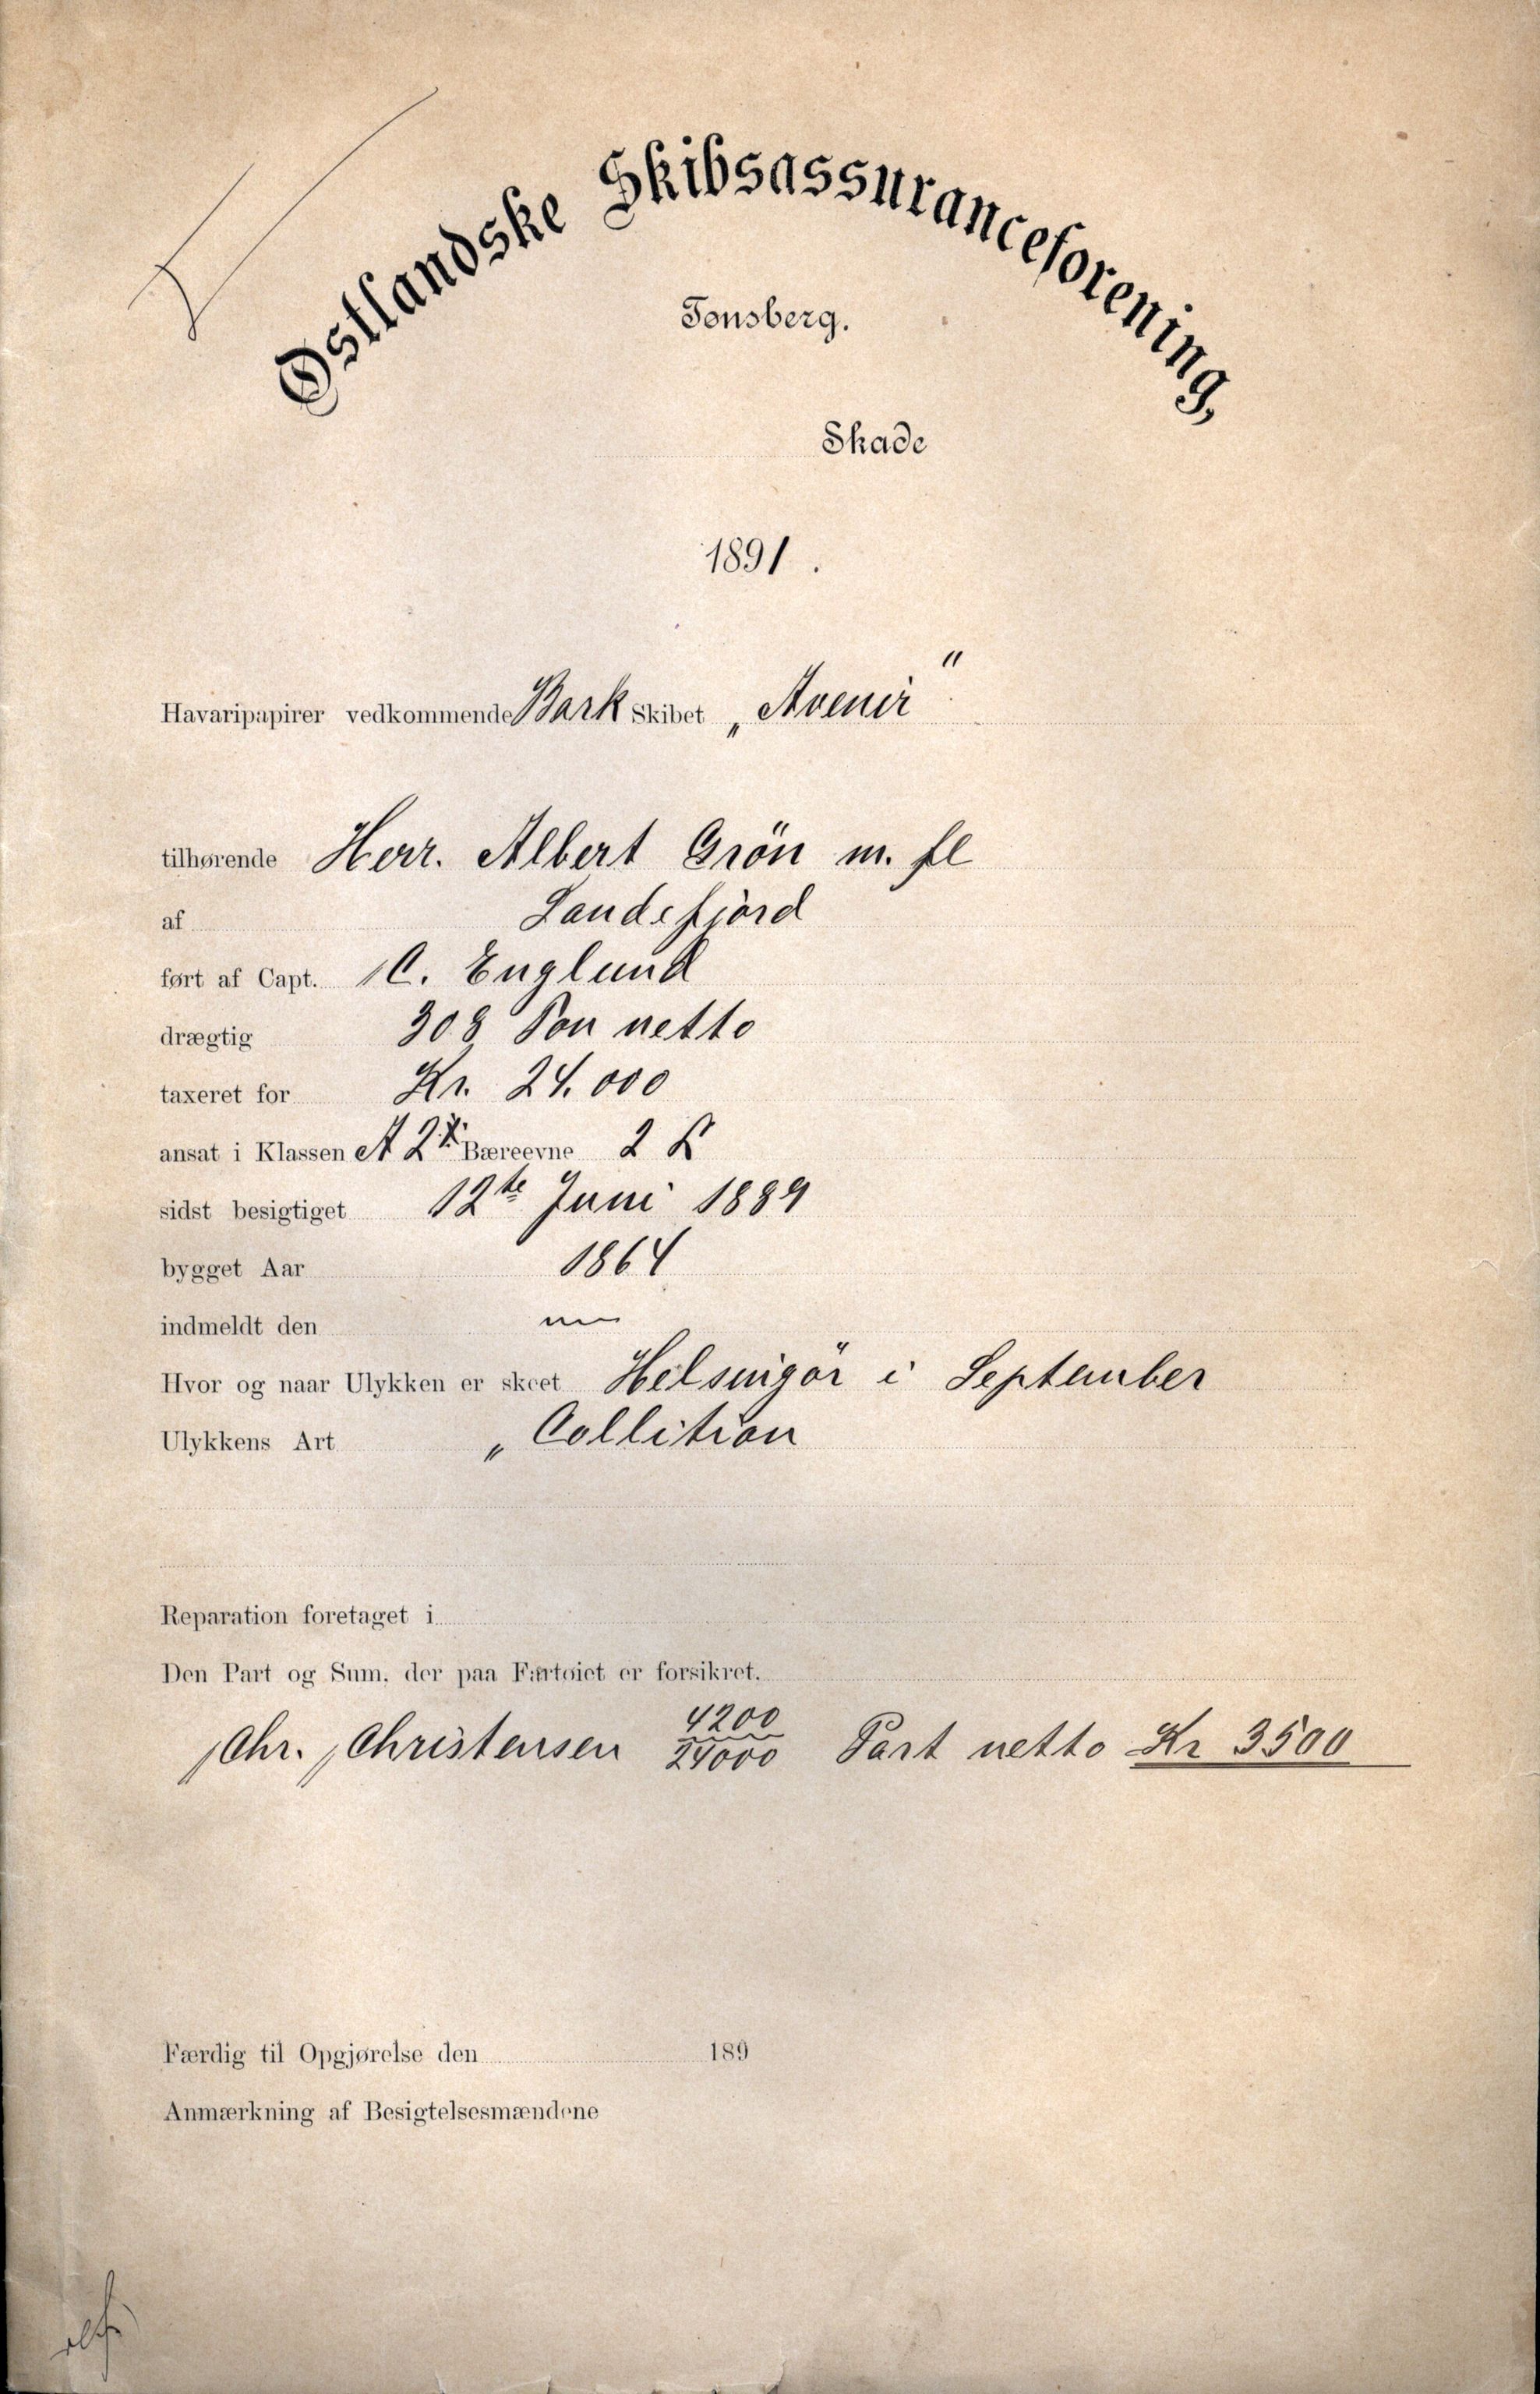 Østlandske Skibsassuranceforening,
Tønsberg.
Skade
1891.
Havaripapirer vedkommende Bark Skibet „Avenir“
tilhørende Herr. Albert Grön m. fl
af Sandefjord
ført af Capt. C. Englund
drægtig 308 Ton netto
taxeret for Kr. 24.000
ansat i Klassen A 2 Bæreevne 2
sidst besigtiget 12te Juni 1889
bygget Aar 1864
indmeldt den
Hvor og naar Ulykken er skeet Helsingör i September
Ulykkens Art „Collition
Reparation foretaget i
Den Part og Sum, der paa Fartøiet er forsikret.
Chr. Christensen 4200/24000 Part netto Kr 3500
Færdig til Opgjørelse den 189
Anmærkning af Besigtelsesmændene